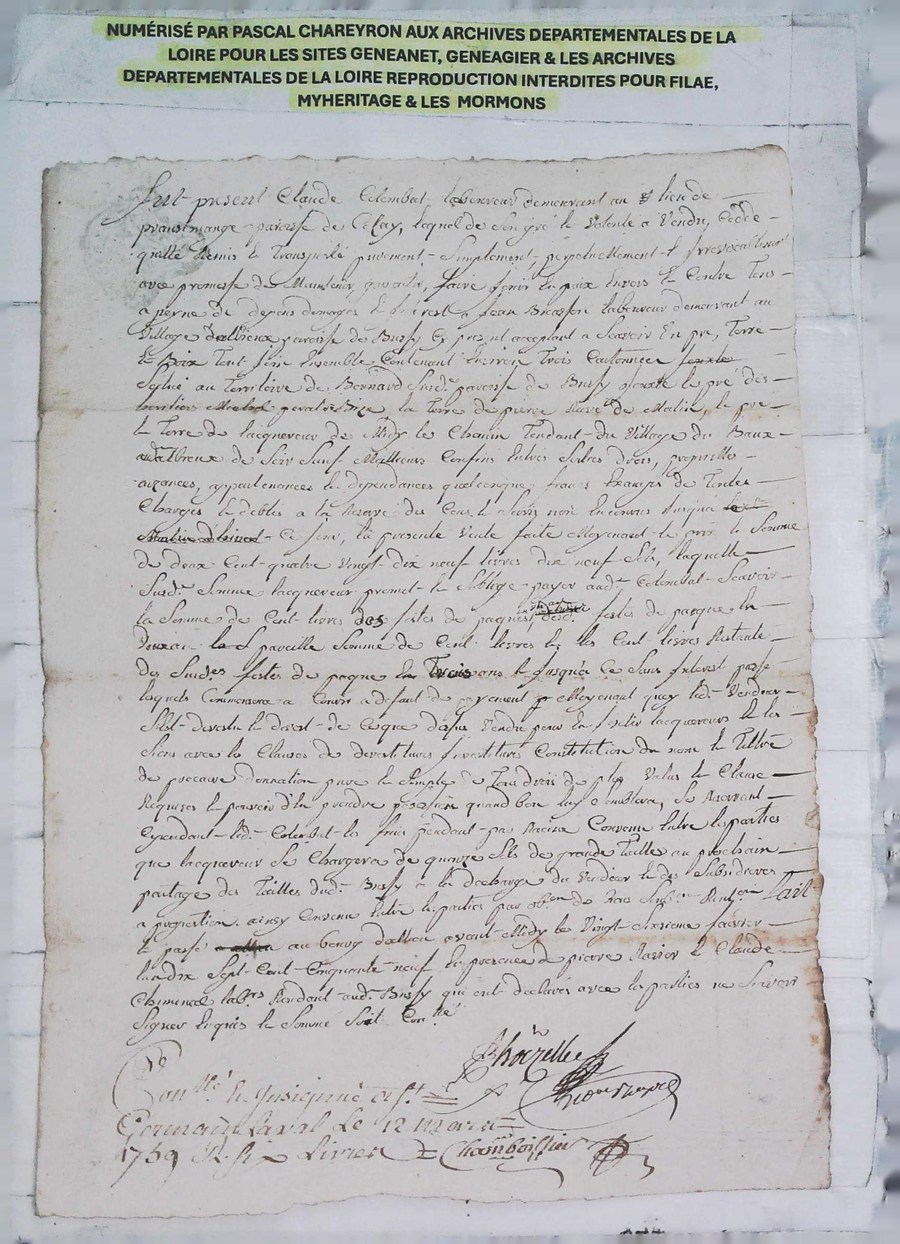 NUMÉRISÉ PAR PASCAL CHAREYRON AUX ARCHIVES DEPARTEMENTALES DE LA
LOIRE POUR LES SITES GENEANET, GENEAGIER & LES ARCHIVES
DEPARTEMENTALES DE LA LOIRE REPRODUCTION INTERDITES POUR FILAE,
MYHERITAGE & LES MORMONS
fut present Claude Colombat, laboureur demeurant au lieu de
paroisse de Cezay, lequel de son gré et Volonté a Vendu, Cédé
quitté Remis et Transporté purement, Simplement, perpetuellement et Irrevocablement
avec promesse de Maintenir, garantir, faire jouir en paix Envers et Contre Tous
a peyne de depens domages et Interest a Jean laboureur demeurant au
Village paroisse de Bussy Cy present acceptant a Scavoir Un pré, Terre
et Bois Tout joint Ensemble Contenant Environ Trois
Scitué au Territoire de Bonnard Susd. paroisse de Bussy le pré des
de Bize la Terre de pierre de Matin, le pré
et Terre de lacquereur de Midy le Chemin Tendant du Village du
de Soir Sauf Meilleurs Confins Entrées Sorties droits, proprietés
aizances, appartenances et dependances quelconques francs de Toutes
Charges et debtes a la Reserve des Cens et Servis non Encourus Jusqua
Ce jour, la presente Vente faite Moyenant le prix et Somme
de deux Cent quatre Vingt dix neuf livres dix neuf Sols, laquelle
Susd. Somme lacquereur promet et soblige payer aud. Colombat Scavoir
la Somme de Cent livres des festes de paques festes de pacque En
pareille Somme de Cent livres et les Cent livres Restante
des Susdes festes de paque En Trois ans et Jusques Ce Sans Interest passé
lesquels Commencera a Courir a defaut de payement Moyenant quoy led. Vendeur
Sest devestu et devest de Ce que dessus Vendu pour En Investir lacquereur et les
Siens avec les Clauses de devestitures Investiture Constitution du nom et Tiltre
de precaire donnation pure et Simple de Tous droits de plus Value et Clause
Requises et pouvoir den prendre possession quand bon luy Semblera, Se Reservant
Cependant led. Colombat les fruits pendant par Racine Convenu Entre les parties
que lacquereur Se Chargera de quinze Sols de grande Tailles au prochain
partage des Tailles dud. Bussy a la decharge du Vendeur et des Subsidiaires
a proportion ainsy Convenu Entre les parties par Fait
et passé au bourg avant Midy le Vingt Sixieme fevrier
Mil Sept Cent Cinquante neuf En presence de pierre et Claude
labrs Residant aud. Bussy qui ont declaré avec les parties ne Scavoir
Signer Enquis et Sommé Soit Conllé
Conllé et Insignué a St
Germain Laval Le 12 Mars
1759 R. six livres